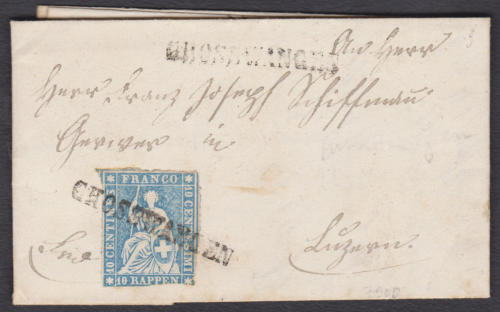 An Herr
GROSSWANGEN
Herr Franz Joseph Schiffmann
Gerwer in
FRANCO
10 CENTIMES
10 CENTESIMI
10 RAPPEN
GROSSWANGEN
Luzern.